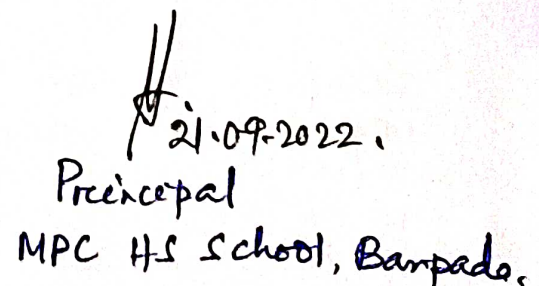 21.09.2022.
Preincepal
MPC HS School, Barpada.